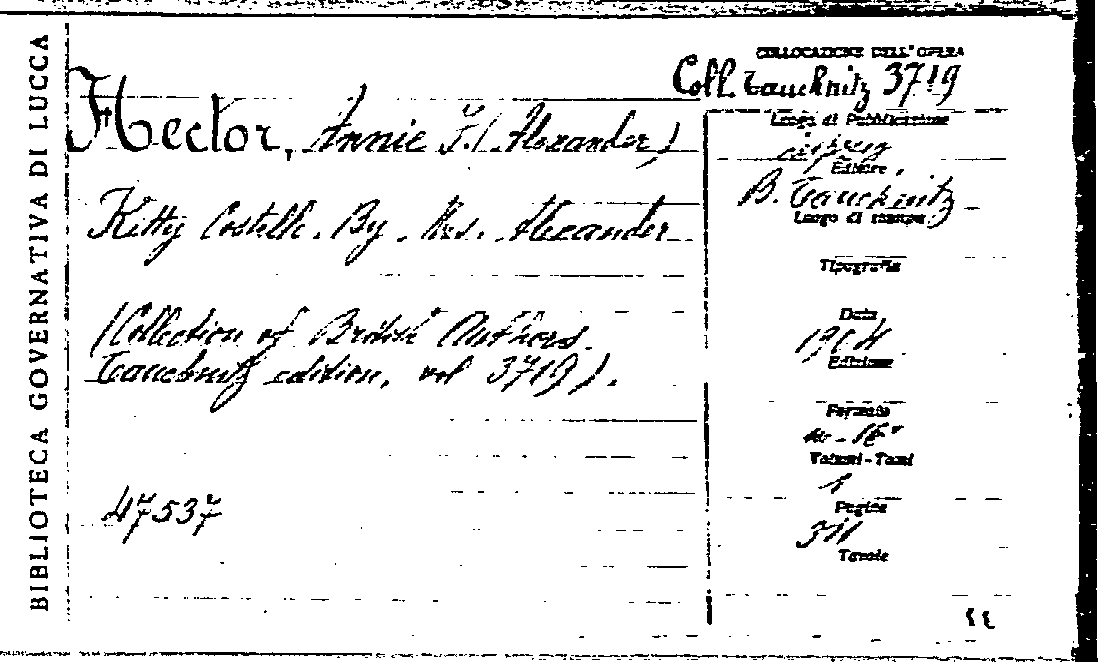 BIBLIOTECA GOVERNATIVA DI LUCCA
COLLOCAZIONE DELL'OPERA
Coll. Tauchnitz 3719
Hector, Annie F. (Alexander)
Kitty Costello. By. Mrs. Alexander
(Collection of British Authors.
Tauchnitz edition, vol 3719).
47537
Luogo di Pubblicazione
Leipzig
Editore
B. Tauchnitz
Luogo di stampa
Tipografia
Data
1904
Edizione
Formato
in-16°
Volumi-Tomi
1
Pagine
311
Tavole